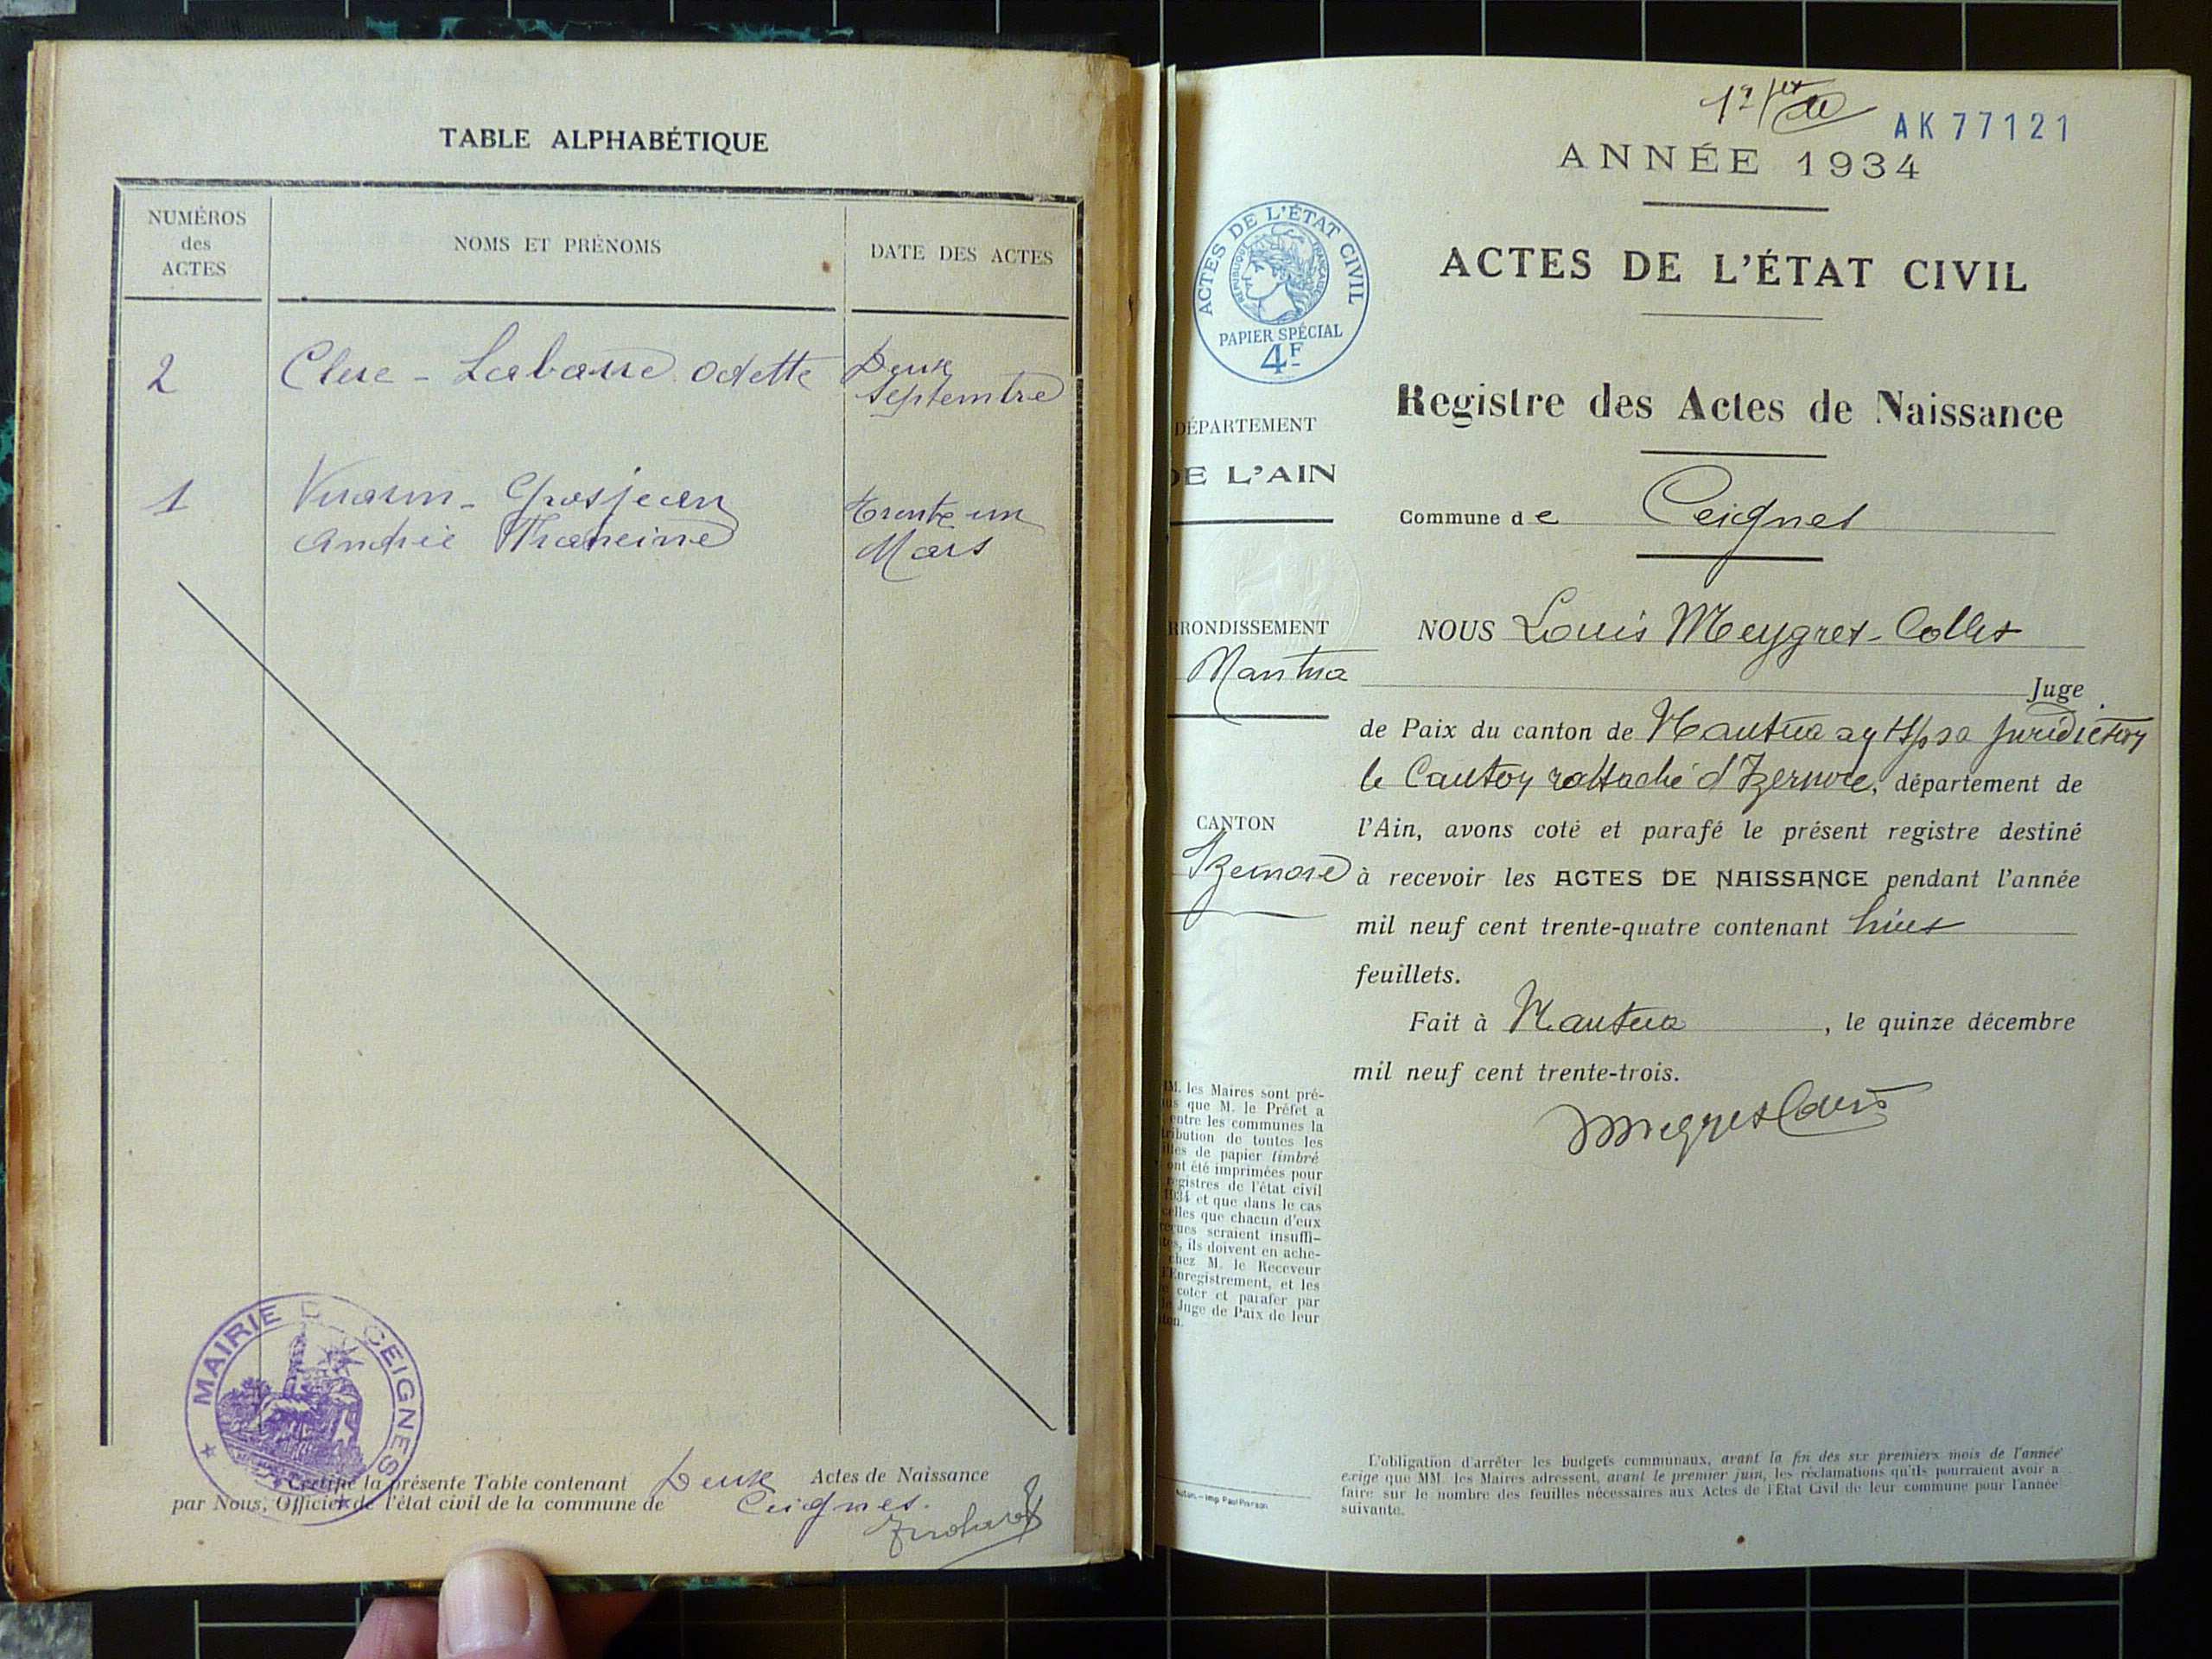 TABLE ALPHABÉTIQUE
NUMÉROS
des
ACTES
NOMS ET PRÉNOMS
DATE DES ACTES
2
Clerc - Labarre Odette
Deux
Septembre
1
Vuarin - Grosjean
Andrée
Trente un
Mars
MAIRIE D CEIGNES
Certifié la présente Table contenant Deux Actes de Naissance
par Nous, Officier de l'état civil de la commune de Ceignes.
AK77121
ANNÉE 1934
ACTES DE L'ÉTAT CIVIL
RÉPUBLIQUE FRANÇAISE
PAPIER SPÉCIAL
4F
ACTES DE L'ÉTAT CIVIL
Registre des Actes de Naissance
DÉPARTEMENT
DE L'AIN
Commune de Ceignes
RRONDISSEMENT
Mantua
NOUS Louis Meygret-Collet
Juge
de Paix du canton de Nantua ayt sa juridiction
le Canton rattaché d'Izernore, département de
CANTON
Izernore
l'Ain, avons coté et parafé le présent registre destiné
à recevoir les ACTES DE NAISSANCE pendant l'année
mil neuf cent trente-quatre contenant huit
feuillets.
Fait à Nantua, le quinze décembre
mil neuf cent trente-trois.
M. les Maires sont pré-
us que M. le Préfet a
entre les communes la
tribution de toutes les
illes de papier timbré
ont été imprimées pour
registres de l'état civil
1934 et que dans le cas
celles que chacun d'eux
recues seraient insuffi-
tes, ils doivent en ache-
chez M. le Receveur
l'Enregistrement, et les
coter et parafer par
le Juge de Paix de leur
ton.
L'obligation d'arrêter les budgets communaux, avant la fin des six premiers mois de l'année
exige que MM. les Maires adressent, avant le premier juin, les réclamations qu'ils pourraient avoir à
faire sur le nombre des feuilles nécessaires aux Actes de l'Etat Civil de leur commune pour l'année
suivante.
Imp. Paul Pierson